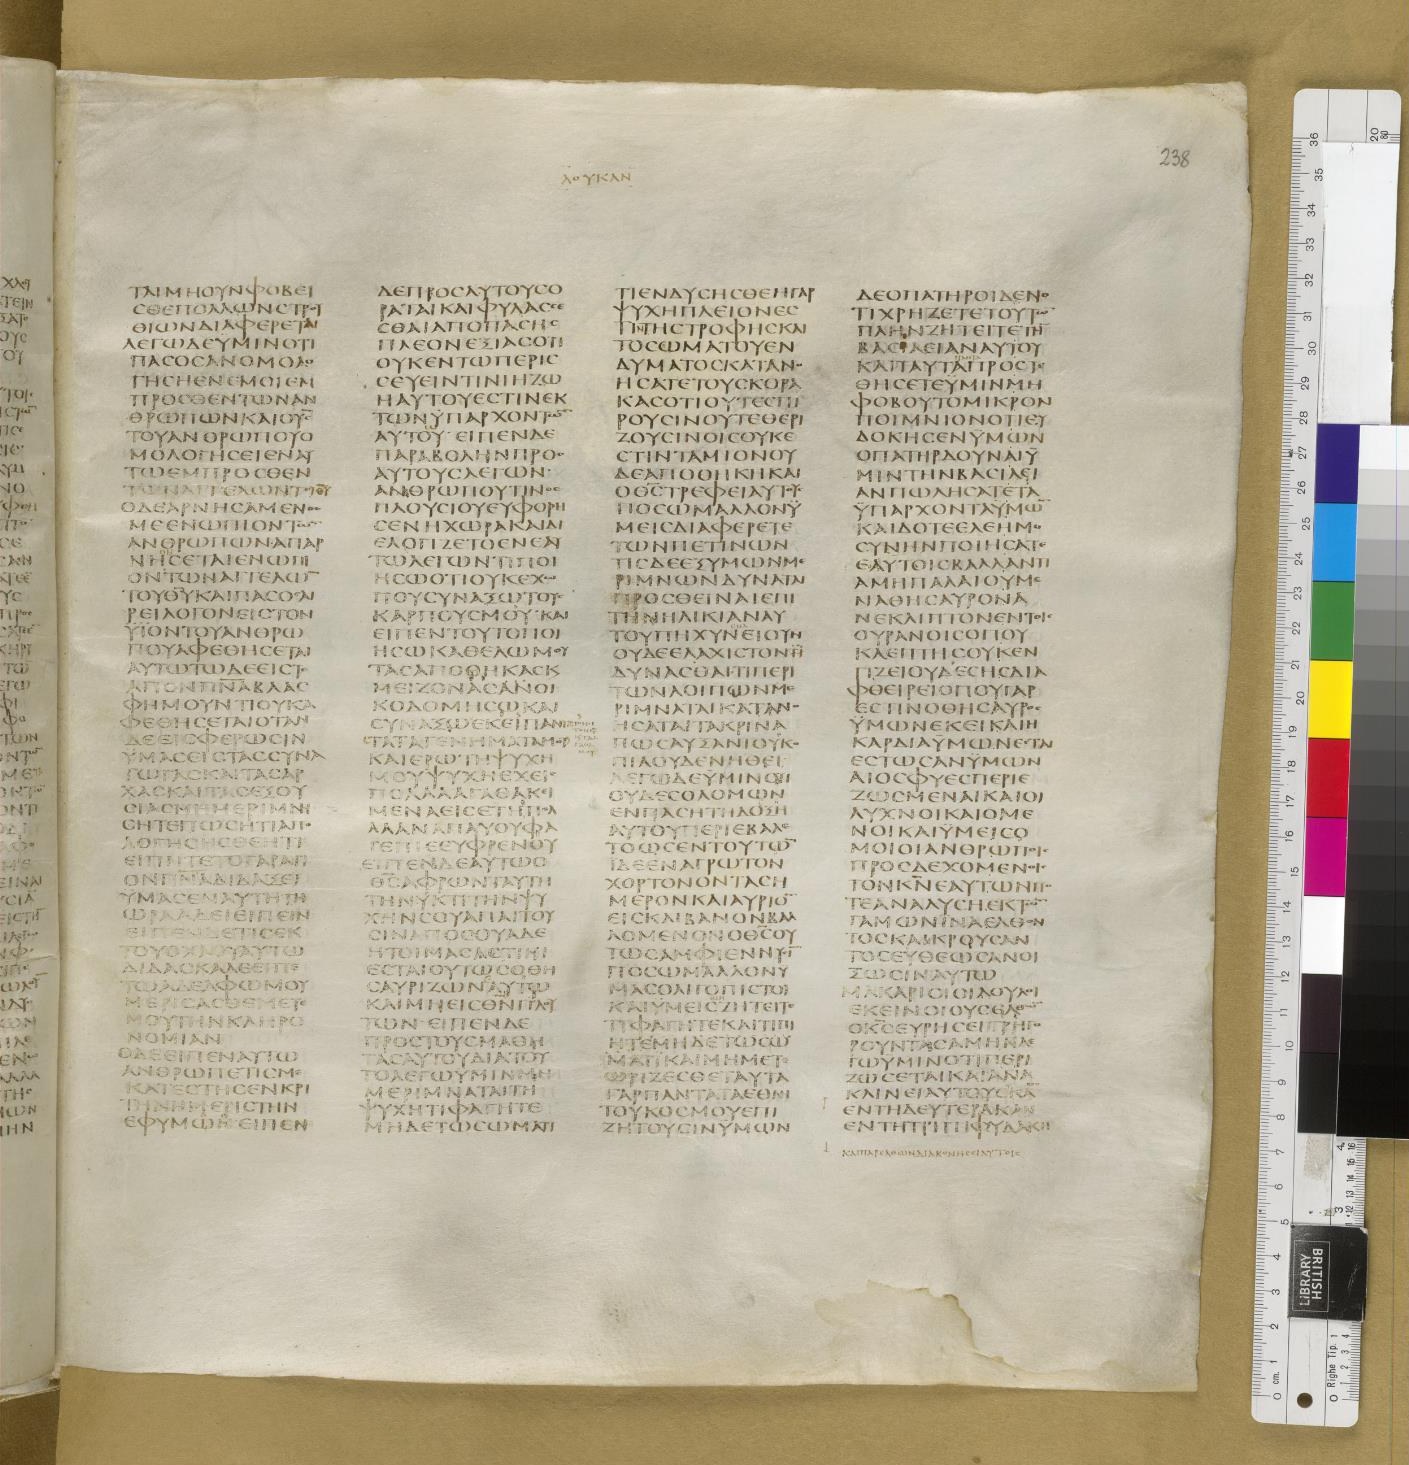 238
ΛΟΥΚΑΝ
ΤΑΙΜΗΟΥΝΦΟΒΕΙ
ΣΘΕΠΟΛΛΩΝΣΤΡΟΥ
ΘΙΩΝΔΙΑΦΕΡΕΤΑΙ
ΛΕΓΩΔΕΥΜΙΝΟΤΙ
ΠΑΣΟΣΑΝΟΜΟΛΟ
ΓΗΣΗΕΝΕΜΟΙΕΜ
ΠΡΟΣΘΕΝΤΩΝΑΝ
ΘΡΩΠΩΝΚΑΙΟΥΣ̅
ΤΟΥΑΝΘΡΩΠΟΥΟ
ΜΟΛΟΓΗΣΕΙΕΝΑΥ
ΤΩΕΜΠΡΟΣΘΕΝ
ΤΩΝΑΓΓΕΛΩΝΤΟΥΘΥ
ΟΔΕΑΡΝΗΣΑΜΕΝΟΣ
ΜΕΕΝΩΠΙΟΝΤΩΝ
ΑΝΘΡΩΠΩΝΑΠΑΡ
ΝΗΣΕΤΑΙΕΝΩΠΙ
ΟΝΤΩΝΑΓΓΕΛΩ̅
ΤΟΥΘΥΚΑΙΠΑΣΟΣΑΙ
ΡΕΙΛΟΓΟΝΕΙΣΤΟΝ
ΥΪΟΝΤΟΥΑΝΘΡΩ
ΠΟΥΑΦΕΘΗΣΕΤΑΙ
ΑΥΤΩΤΩΔΕΕΙΣΤΟ
ΑΓΙΟΝΠΝΑΒΛΑΣ
ΦΗΜΟΥΝΤΙΟΥΚΑ
ΦΕΘΗΣΕΤΑΙΟΤΑΝ
ΔΕΕΙΣΦΕΡΩΣΙΝ
ΥΜΑΣΕΙΣΤΑΣΣΥΝΑ
ΓΩΓΑΣΚΑΙΤΑΣΑΡ
ΧΑΣΚΑΙΤΑΣΕΞΟΥ
ΣΙΑΣΜΗΜΕΡΙΜΝΗ
ΣΗΤΕΠΩΣΗΤΙΑΠΟ
ΛΟΓΗΣΗΣΘΕΗΤΙ
ΕΙΠΗΤΕΤΟΓΑΡΑΓΙ
ΟΝΠΝΑΔΙΔΑΞΕΙ
ΥΜΑΣΕΝΑΥΤΗΤΗ
ΩΡΑΑΔΕΙΕΙΠΕΙΝ
ΕΙΠΕΝΔΕΤΙΣΕΚ
ΤΟΥΟΧΛΟΥΑΥΤΩ
ΔΙΔΑΣΚΑΛΕΕΙΠΕ
ΤΩΑΔΕΛΦΩΜΟΥ
ΜΕΡΙΣΑΣΘΕΜΕΤΕ
ΜΟΥΤΗΝΚΛΗΡΟ
ΝΟΜΙΑΝ
ΟΔΕΕΙΠΕΝΑΥΤΩ
ΑΝΘΡΩΠΕΤΙΣΜΕ
ΚΑΤΕΣΤΗΣΕΝΚΡΙ
ΤΗΝΗΜΕΡΙΣΤΗΝ
ΕΦΥΜΩΝΕΙΠΕΝ
ΔΕΠΡΟΣΑΥΤΟΥΣΟ
ΡΑΤΑΙΚΑΙΦΥΛΑΣΣΕ
ΣΘΑΙΑΠΟΠΑΣΗΣ
ΠΛΕΟΝΕΞΙΑΣΟΤΙ
ΟΥΚΕΝΤΩΠΕΡΙΣ
ΣΕΥΕΙΝΤΙΝΙΗΖΩ
ΗΑΥΤΟΥΕΣΤΙΝΕΚ
ΤΩΝΫΠΑΡΧΟΝΤΩ̅
ΑΥΤΟΥ·ΕΙΠΕΝΔΕ
ΠΑΡΑΒΟΛΗΝΠΡΟΣ
ΑΥΤΟΥΣΛΕΓΩΝ·
ΑΝΘΡΩΠΟΥΤΙΝΟΣ
ΠΛΟΥΣΙΟΥΕΥΦΟΡΗ
ΣΕΝΗΧΩΡΑΚΑΙΔΙ
ΕΛΟΓΙΖΕΤΟΕΝΕΑΥ
ΤΩΛΕΓΩΝΤΙΠΟΙ
ΗΣΩΟΤΙΟΥΚΕΧΩ
ΠΟΥΣΥΝΑΞΩΤΟΥΣ
ΚΑΡΠΟΥΣΜΟΥ·ΚΑΙ
ΕΙΠΕΝΤΟΥΤΟΠΟΙ
ΗΣΩΚΑΘΕΛΩΜΟΥ
ΤΑΣΑΠΟΘΗΚΑΣΚ
ΜΕΙΖΟΝΑΣΑΝΟΙ
ΚΟΔΟΜΗΣΩΚΑΙ
ΣΥΝΑΞΩΕΚΕΙΠΑΝ
ΤΑΤΑΓΕΝΗΜΑΤΑΜΟΥ
ΚΑΙΕΡΩΤΗΨΥΧΗ
ΜΟΥΨΥΧΗΕΧΕΙΣ
ΠΟΛΛΑΑΓΑΘΑΚΙ
ΜΕΝΑΕΙΣΕΤΗΠΟΛ
ΛΑΑΝΑΠΑΥΟΥΦΑ
ΓΕΠΙΕΕΥΦΡΕΝΟΥ
ΕΙΠΕΝΔΕΑΥΤΩΟ
ΘΣΑΦΡΩΝΤΑΥΤΗ
ΤΗΝΥΚΤΙΤΗΝΨΥ
ΧΗΝΣΟΥΑΠΑΙΤΟΥ
ΣΙΝΑΠΟΣΟΥΑΔΕ
ΗΤΟΙΜΑΣΑΣΤΙΝΙ
ΕΣΤΑΙΟΥΤΩΣΟΘΗ
ΣΑΥΡΙΖΩΝΑΥΤΩ
ΚΑΙΜΗΕΙΣΘΝΠΛΟΥ
ΤΩΝ·ΕΙΠΕΝΔΕ
ΠΡΟΣΤΟΥΣΜΑΘΗ
ΤΑΣΑΥΤΟΥΔΙΑΤΟΥ
ΤΟΛΕΓΩΥΜΙΝΜΗ
ΜΕΡΙΜΝΑΤΑΙΤΗ
ΨΥΧΗΤΙΦΑΓΗΤΕ
ΜΗΔΕΤΩΣΩΜΑΤΙ
ΤΙΕΝΔΥΣΗΣΘΕΗΓΑΡ
ΨΥΧΗΠΛΕΙΟΝΕΣ
ΤΙΤΗΣΤΡΟΦΗΣΚΑΙ
ΤΟΣΩΜΑΤΟΥΕΝ
ΔΥΜΑΤΟΣΚΑΤΑΝΟ
ΗΣΑΤΕΤΟΥΣΚΟΡΑ
ΚΑΣΟΤΙΟΥΤΕΣΠΙ
ΡΟΥΣΙΝΟΥΤΕΘΕΡΙ
ΖΟΥΣΙΝΟΙΣΟΥΚΕ
ΣΤΙΝΤΑΜΙΟΝΟΥ
ΔΕΑΠΟΘΗΚΗΚΑΙ
ΟΘΣΤΡΕΦΕΙΑΥΤΟΥΣ
ΠΟΣΩΜΑΛΛΟΝΫ
ΜΕΙΣΔΙΑΦΕΡΕΤΕ
ΤΩΝΠΕΤΙΝΩΝ
ΤΙΣΔΕΕΞΥΜΩΝΜΕ
ΡΙΜΝΩΝΔΥΝΑΤΑΙ
ΠΡΟΣΘΕΙΝΑΙΕΠΙ
ΤΗΝΗΛΙΚΙΑΝΑΥ
ΤΟΥΠΗΧΥΝΕΙΟΥΝ
ΟΥΔΕΕΛΑΧΙΣΤΟΝΗ
ΔΥΝΑΣΘΑΙ·ΤΙΠΕΡΙ
ΤΩΝΛΟΙΠΩΝΜΕ
ΡΙΜΝΑΤΑΙΚΑΤΑΝΟ
ΗΣΑΤΑΙΤΑΚΡΙΝΑ
ΠΩΣΑΥΞΑΝΙΟΥΚΟ
ΠΙΑΟΥΔΕΝΗΘΕΙ
ΛΕΓΩΔΕΥΜΙΝΟΤΙ
ΟΥΔΕΣΟΛΟΜΩΝ
ΕΝΠΑΣΗΤΗΔΟΞΗ
ΑΥΤΟΥΠΕΡΙΕΒΑΛΕ
ΤΟΩΣΕΝΤΟΥΤΩ̅
ΙΔΕΕΝΑΓΡΩΤΟΝ
ΧΟΡΤΟΝΟΝΤΑΣΗ
ΜΕΡΟΝΚΑΙΑΥΡΙΟ̅
ΕΙΣΚΛΙΒΑΝΟΝΒΑΛ
ΛΟΜΕΝΟΝΟΘΣΟΥ
ΤΩΣΑΜΦΙΕΝΝΥΣΙ̅
ΠΟΣΩΜΑΛΛΟΝΥ
ΜΑΣΟΛΙΓΟΠΙΣΤΟΙ
ΚΑΙΥΜΕΙΣΖΗΤΕΙΤΕ
ΤΙΦΑΓΗΤΕΚΑΙΤΙΠΙ
ΗΤΕΜΗΔΕΤΩΣΩ
ΜΑΤΙΚΑΙΜΗΜΕΤΕ
ΩΡΙΖΕΣΘΕΤΑΥΤΑ
ΓΑΡΠΑΝΤΑΤΑΕΘΝΗ
ΤΟΥΚΟΣΜΟΥΕΠΙ
ΖΗΤΟΥΣΙΝΥΜΩΝ
ΔΕΟΠΑΤΗΡΟΙΔΕΝΟ
ΤΙΧΡΗΖΕΤΕΤΟΥΤΩ̅
ΠΛΗΝΖΗΤΕΙΤΕΤΗ̅
ΒΑΣΙΛΕΙΑΝΑΥΤΟΥ
ΚΑΙΤΑΥΤΑΠΡΟΣΤΕ
ΘΗΣΕΤΕΥΜΙΝΜΗ
ΦΟΒΟΥΤΟΜΙΚΡΟΝ
ΠΟΙΜΝΙΟΝΟΤΙΕΥ
ΔΟΚΗΣΕΝΫΜΩΝ
ΟΠΑΤΗΡΔΟΥΝΑΙΫ
ΜΙΝΤΗΝΒΑΣΙΛΕΙ
ΑΝΠΩΛΗΣΑΤΕΤΑ
ΫΠΑΡΧΟΝΤΑΥΜΩ̅
ΚΑΙΔΟΤΕΕΛΕΗΜΟ
ΣΥΝΗΝΠΟΙΗΣΑΤΕ
ΕΑΥΤΟΙΣΒΑΛΛΑΝΤΙ
ΑΜΗΠΑΛΑΙΟΥΜΕ
ΝΑΘΗΣΑΥΡΟΝΑ
ΝΕΚΛΙΠΤΟΝΕΝΤΟΙΣ
ΟΥΡΑΝΟΙΣΟΠΟΥ
ΚΛΕΠΤΗΣΟΥΚΕΝ
ΓΙΖΕΙΟΥΔΕΣΗΣΔΙΑ
ΦΘΕΙΡΕΙΟΠΟΥΓΑΡ
ΕΣΤΙΝΟΘΗΣΑΥΡΟΣ
ΫΜΩΝΕΚΕΙΚΑΙΗ
ΚΑΡΔΙΑΥΜΩΝΕΣΤΑΙ
ΕΣΤΩΣΑΝΫΜΩΝ
ΑΙΟΣΦΥΕΣΠΕΡΙΕ
ΖΩΣΜΕΝΑΙΚΑΙΟΙ
ΛΥΧΝΟΙΚΑΙΟΜΕ
ΝΟΙΚΑΙΫΜΕΙΣΟ
ΜΟΙΟΙΑΝΘΡΩΠΟΙΣ
ΠΡΟΣΔΕΧΟΜΕΝΟΙΣ
ΤΟΝΚΝΕΑΥΤΩΝΠΟ
ΤΕΑΝΑΛΥΣΗΕΚΤΩ̅
ΓΑΜΩΝΙΝΑΕΛΘΟΝ
ΤΟΣΚΑΙΚΡΟΥΣΑΝ
ΤΟΣΕΥΘΕΩΣΑΝΟΙ
ΞΩΣΙΝΑΥΤΩ
ΜΑΚΑΡΙΟΙΟΙΔΟΥΛΟΙ
ΕΚΕΙΝΟΙΟΥΣΕΛΘΩ̅
ΟΚΣΕΥΡΗΣΕΙΓΡΗΓΟ
ΡΟΥΝΤΑΣΑΜΗΝΛΕ
ΓΩΥΜΙΝΟΤΙΠΕΡΙ
ΖΩΣΕΤΑΙΚΑΙΑΝΑ
ΚΛΙΝΕΙΑΥΤΟΥΣΚΑ̅
ΕΝΤΗΔΕΥΤΕΡΑΚΑΝ
ΕΝΤΗΤΡΙΤΗΦΥΛΑΚΗ
ΚΑΙΠΑΡΕΛΘΩΝΔΙΑΚΟΝΗΣΕΙΑΥΤΟΙΣ
BRITISH
LIBRARY